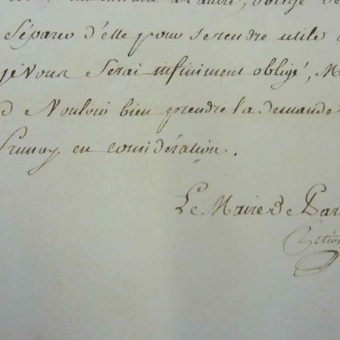 Séparer d'elle pour Se rendre utile
je Vous Serai infiniment obligé, M
d Vouloir bien prendre la demande
en considération.
Le Maire de Par